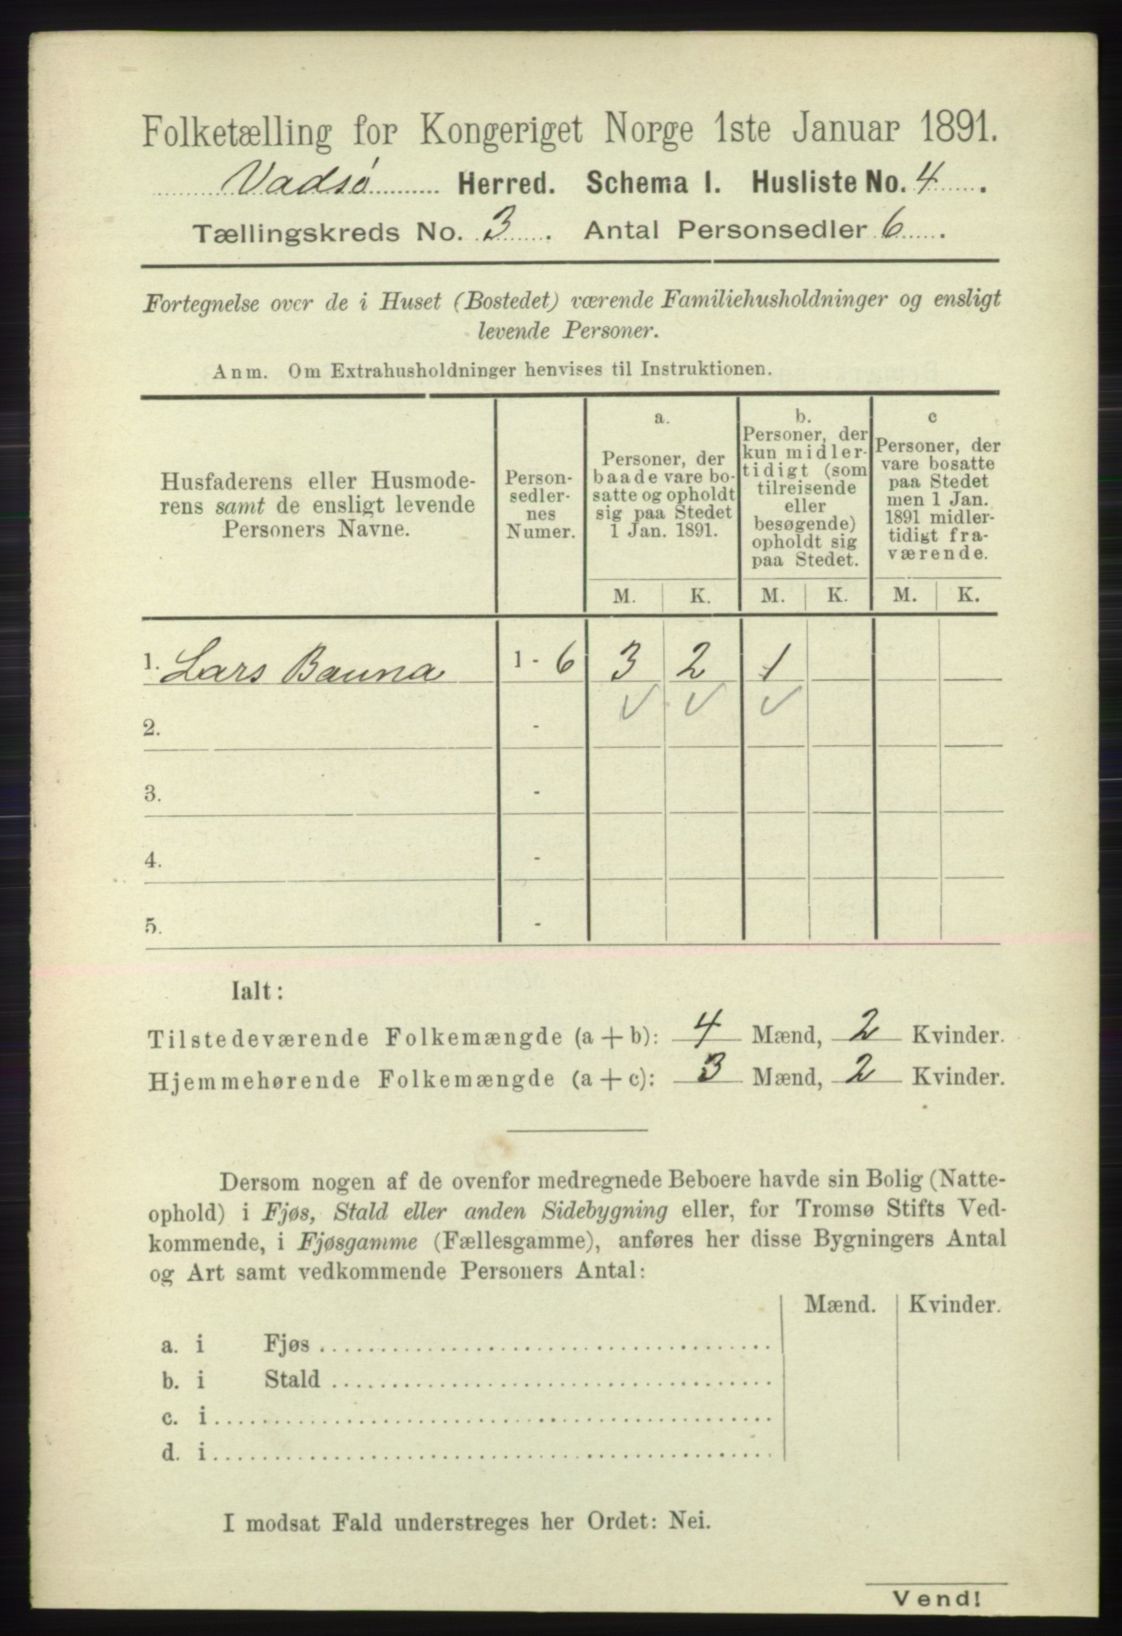 Folketælling for Kongeriget Norge 1ste Januar 1891.
Vadsø Herred. Schema I. Husliste No. 4.
Tællingskreds No. 3. Antal Personsedler 6.
Fortegnelse over de i Huset (Bostedet) værende Familiehusholdninger og ensligt
levende Personer.
Anm. Om Extrahusholdninger henvises til Instruktionen.
Husfaderens eller Husmode-
rens samt de ensligt levende
Personers Navne.
Person-
sedler-
nes
Numer.
a.
Personer, der
baade vare bo-
satte og opholdt
sig paa Stedet
1 Jan. 1891.
b.
Personer, der
kun midler-
tidigt (som
tilreisende
eller
besøgende)
opholdt sig
paa Stedet.
c
Personer, der
vare bosatte
paa Stedet
men 1 Jan.
1891 midler-
tidigt fra-
værende.
M. K. M. K. M. K.
1. Lars Bauna 1 - 6 3 2 1
2. -
3. -
4. -
5. -
Ialt:
Tilstedeværende Folkemængde (a + b): 4 Mænd, 2 Kvinder.
Hjemmehørende Folkemængde (a + c): 3 Mænd, 2 Kvinder.
Dersom nogen af de ovenfor medregnede Beboere havde sin Bolig (Natte-
ophold) i Fjøs, Stald eller anden Sidebygning eller, for Tromsø Stifts Ved-
kommende, i Fjøsgamme (Fællesgamme), anføres her disse Bygningers Antal
og Art samt vedkommende Personers Antal:
Mænd. Kvinder.
a. i Fjøs
b. i Stald
c. i
d. i
I modsat Fald understreges her Ordet: Nei.
Vend!